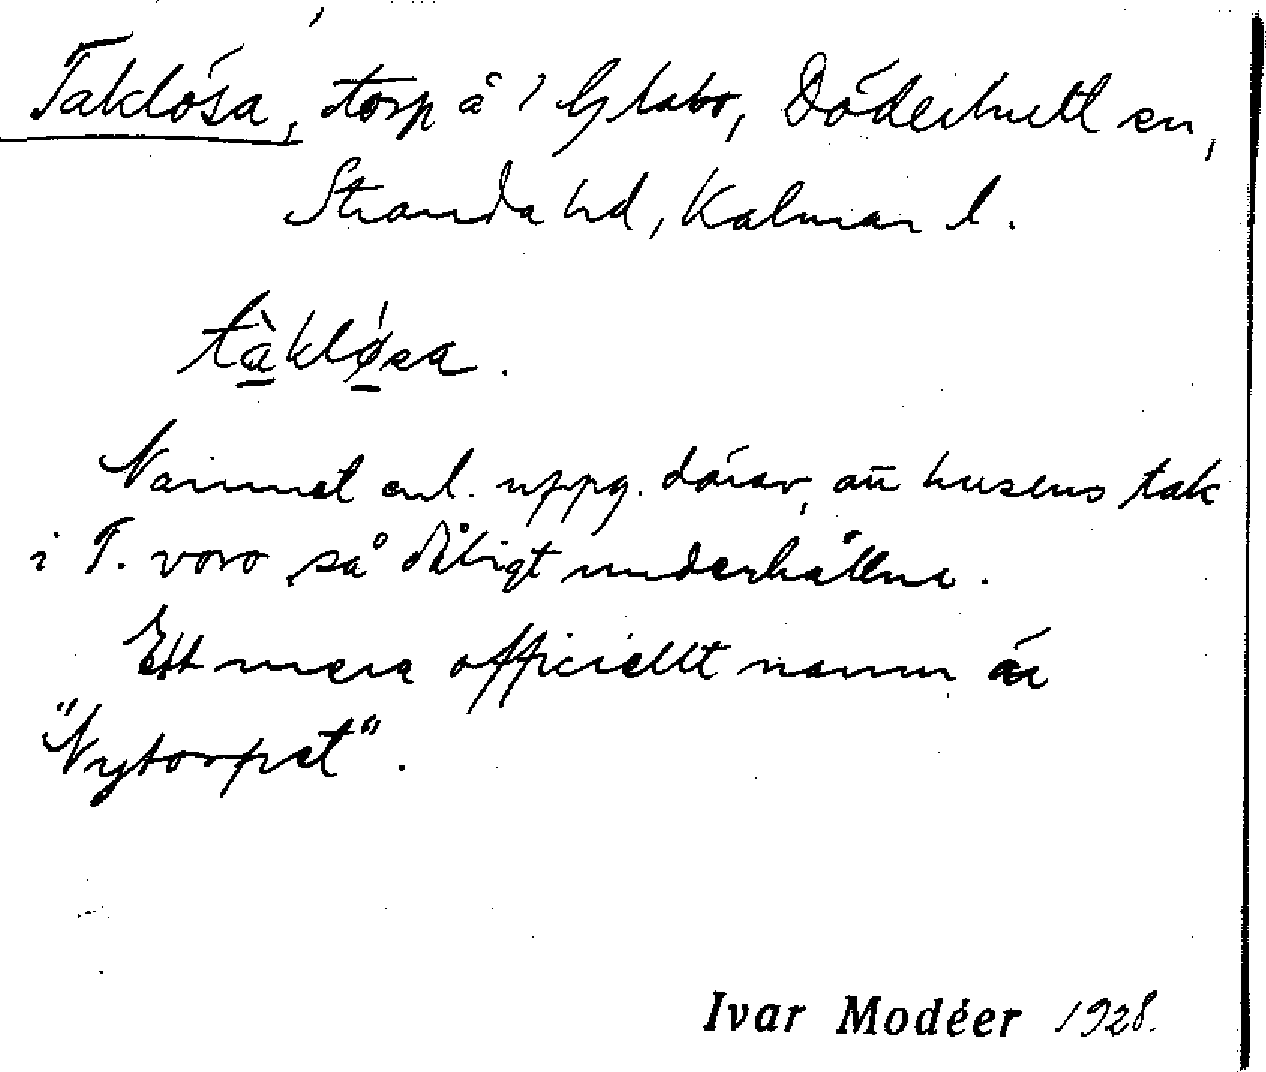 Taklösa, torp å 1 Glabo, Döderhult sn,
Stranda hd, Kalmar l.
tàkløsa.
Namnet enl. uppg. därav, att husens tak
i T. voro så dåligt underhållna.
Ett mera officiellt namn är
"Nytorpet".
Ivar Modéer 1928.